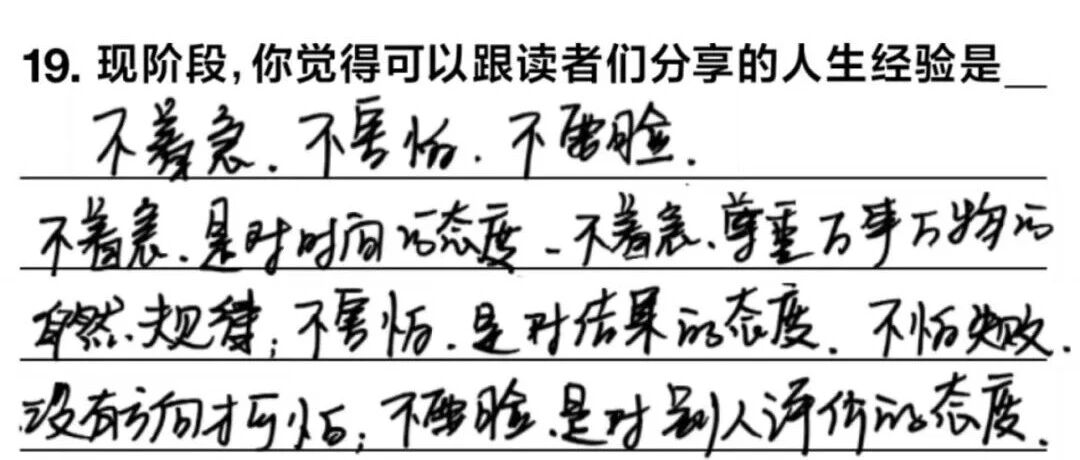 19. 现阶段,你觉得可以跟读者们分享的人生经验是__
不着急.不害怕.不要脸.
不着急.是对时间的态度-不着急.尊重万事万物的
自然规律;不害怕.是对结果的态度.不怕失败.
没有方向才可怕;不要脸.是对别人评价的态度.